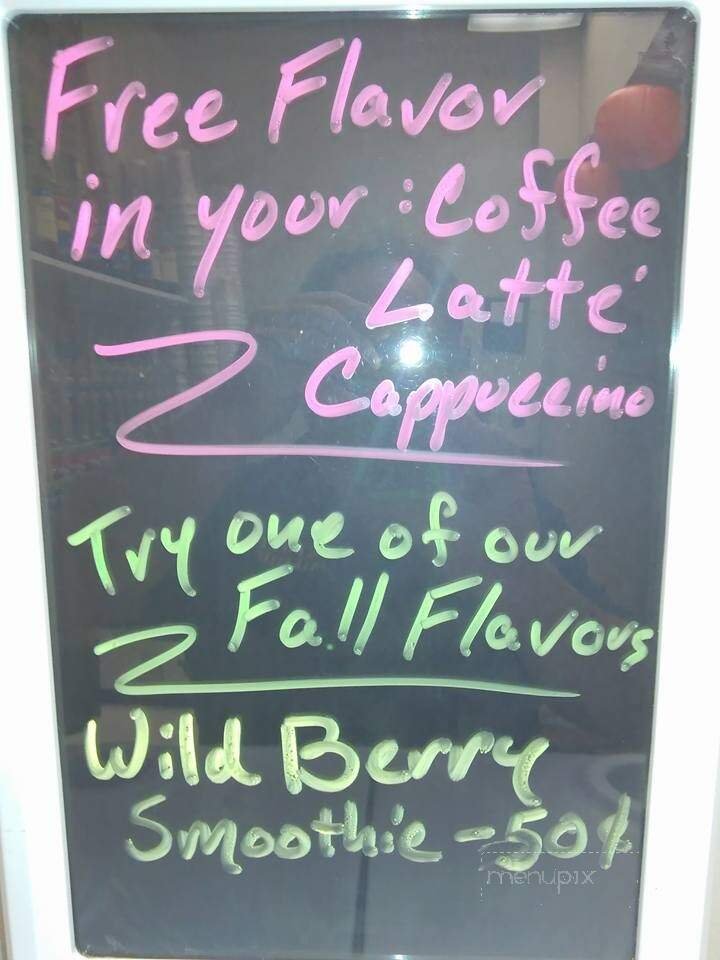 Free Flavor
in your : Coffee
Latté
Cappuccino
Try one of our
Fall Flavors
Wild Berry
Smoothie - 50¢
menupix